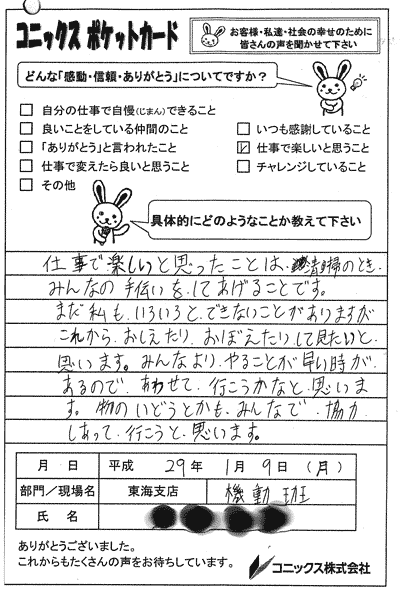 コニックス ポケットカード
お客様・私達・社会の幸せのために
皆さんの声を聞かせて下さい
どんな「感動・信頼・ありがとう」についてですか?
自分の仕事で自慢(じまん)できること
良いことをしている仲間のこと
いつも感謝していること
「ありがとう」と言われたこと
仕事で楽しいと思うこと
仕事で変えたら良いと思うこと
チャレンジしていること
その他
具体的にどのようなことか教えて下さい
仕事で楽しいと思ったことは、清掃のとき、
みんなの手伝いをしてあげることです。
まだ私も、いろいろとできないことがありますが
これから、おしえたり、おぼえたりして見たいと、
思います。みんなより、やることが早い時が、
あるので、あわせて、行こうかなと、思いま
す。物のいどうとかも、みんなで、協力、
しあって、行こうと、思います。
月 日 平成 29年 1月 9日 (月)
部門/現場名 東海支店 機動班
氏 名
ありがとうございました。
これからもたくさんの声をお待ちしています。
コニックス株式会社